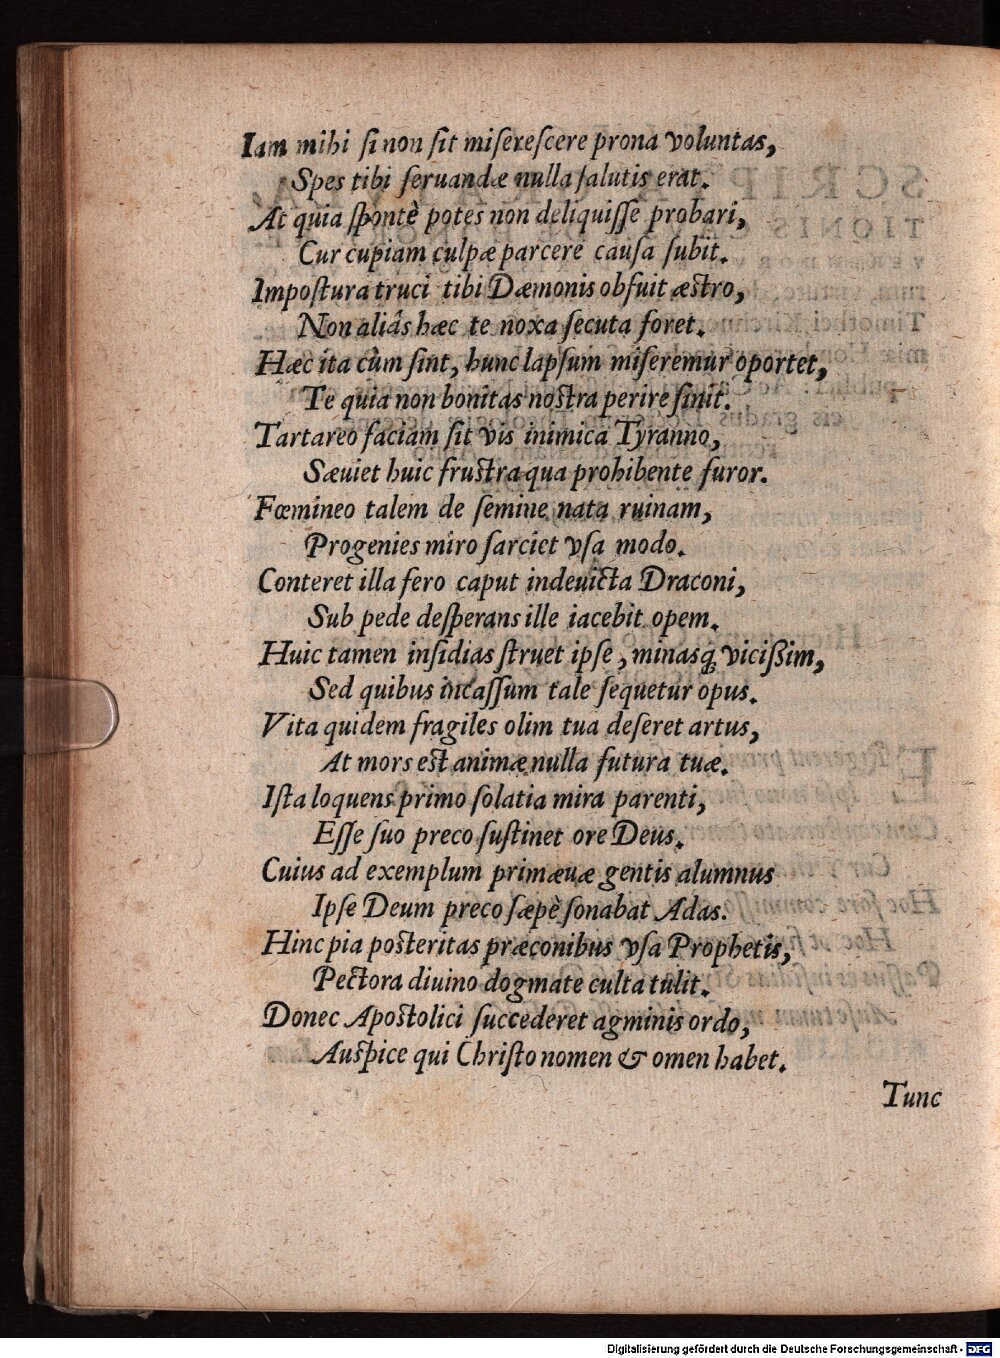 Iam mihi ſi non ſit miſereſcere prona voluntas,
Spes tibi ſeruandæ nulla ſalutis erat.
At quia ſpontè potes non deliquiſſe probari,
Cur cupiam culpæ parcere cauſa ſubit.
Impoſtura truci tibi Dæmonis obfuit æſtro,
Non aliâs hæc te noxa ſecuta foret.
Hæc ita cùm ſint, hunc lapſum miſeremur oportet,
Te quia non bonitas noſtra perire ſinit.
Tartareo faciam ſit vis inimica Tyranno,
Sæuiet huic fruſtra qua prohibente furor.
Fœmineo talem de ſemine nata ruinam,
Progenies miro ſarciet vſa modo.
Conteret illa fero caput indeuicta Draconi,
Sub pede deſperans ille iacebit opem.
Huic tamen inſidias ſtruet ipſe, minasq́; vicißim,
Sed quibus incaſſum tale ſequetur opus.
Vita quidem fragiles olim tua deſeret artus,
At mors eſt animæ nulla futura tuæ.
Iſta loquens primo ſolatia mira parenti,
Eſſe ſuo preco ſuſtinet ore Deus.
Cuius ad exemplum primæuæ gentis alumnus
Ipſe Deum preco ſæpè ſonabat Adas.
Hinc pia poſteritas præconibus vſa Prophetis,
Pectora diuino dogmate culta tulit.
Donec Apoſtolici ſuccederet agminis ordo,
Auſpice qui Chriſto nomen & omen habet.
Tunc
Digitalisierung gefördert durch die Deutsche Forschungsgemeinschaft - DFG